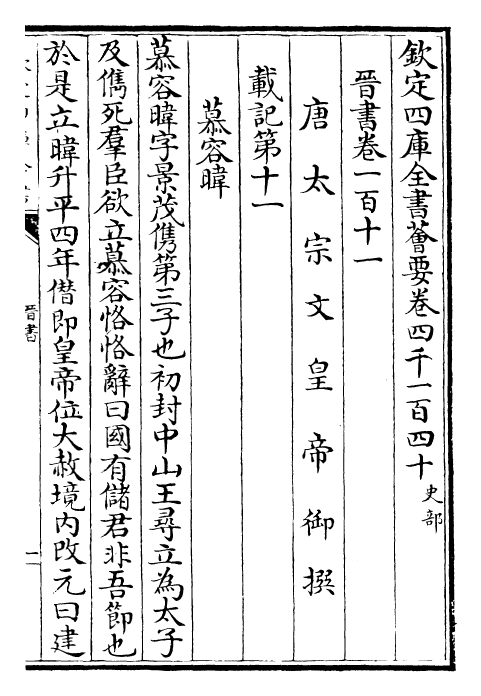 欽定四庫全書薈要卷四千一百四十 史部
晉書卷一百十一
唐太宗文皇帝御撰
載記第十一
慕容暐
慕容暐字景茂儁第三子也初封中山王尋立為太子
及儁死羣臣欲立慕容恪恪辭曰國有儲君非吾節也
於是立暐升平四年僭即皇帝位大赦境內改元曰建
晉書
一